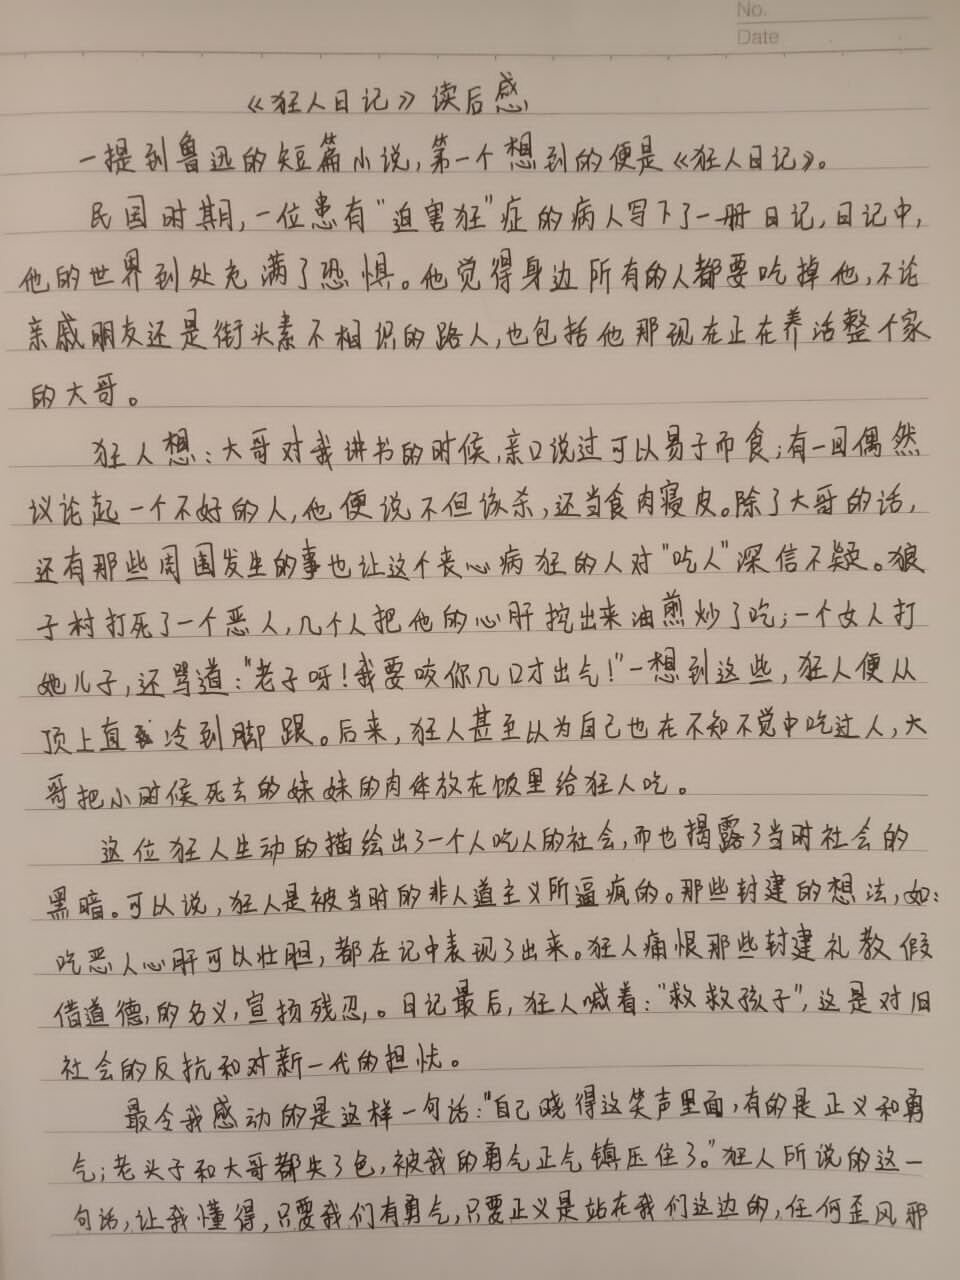 No.
Date
《狂人日记》读后感
一提到鲁迅的短篇小说，第一个想到的便是《狂人日记》。
民国时期，一位患有“迫害狂”症的病人写下了一册日记，日记中，
他的世界到处充满了恐惧。他觉得身边所有的人都要吃掉他，不论
亲戚朋友还是街头素不相识的路人，也包括他那现在正在养活整个家
的大哥。
狂人想：大哥对我讲书的时候，亲口说过可以易子而食；有一回偶然
议论起一个不好的人，他便说不但该杀，还当食肉寝皮。除了大哥的话，
还有那些周围发生的事也让这个丧心病狂的人对“吃人”深信不疑。狼
子村打死了一个恶人，几个人把他的心肝挖出来油煎炒了吃；一个女人打
她儿子，还骂道：“老子呀！我要咬你几口才出气！”一想到这些，狂人便从
顶上直冷到脚跟。后来，狂人甚至以为自己也在不知不觉中吃过人，大
哥把小时候死去的妹妹的肉体放在饭里给狂人吃。
这位狂人生动的描绘出了一个人吃人的社会，而也揭露了当时社会的
黑暗。可以说，狂人是被当时的非人道主义所逼疯的。那些封建的想法，如：
吃恶人心肝可以壮胆，都在记中表现了出来。狂人痛恨那些封建礼教假
借道德，的名义，宣扬残忍，。日记最后，狂人喊着：“救救孩子”，这是对旧
社会的反抗和对新一代的担忧。
最令我感动的是这样一句话：“自己晓得这笑声里面，有的是正义和勇
气；老头子和大哥都失了色，被我的勇气正气镇压住了。”狂人所说的这一
句话，让我懂得，只要我们有勇气，只要正义是站在我们这边的，任何歪风邪